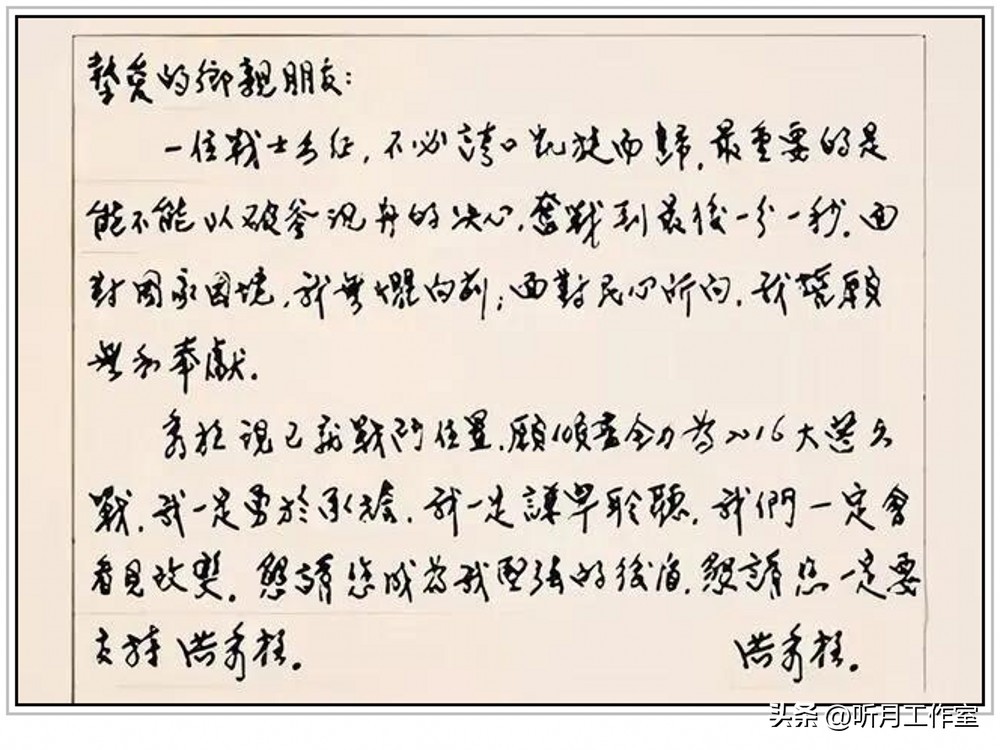 摯愛的鄉親朋友：
一位戰士出征，不必誇口凱旋而歸，最重要的是
能不能以破釜沉舟的決心，奮戰到最後一分一秒。面
對國家困境，我無懼向前；面對民心所向，我願
無私奉獻。
秀柱現已就戰鬥位置，願傾盡全力為2016大選之
戰，我一定勇於承擔，我一定謙卑聆聽，我們一定會
看見改變。懇請您成為我堅強的後盾，懇請您一定要
支持洪秀柱。 洪秀柱。
头条 @听月工作室